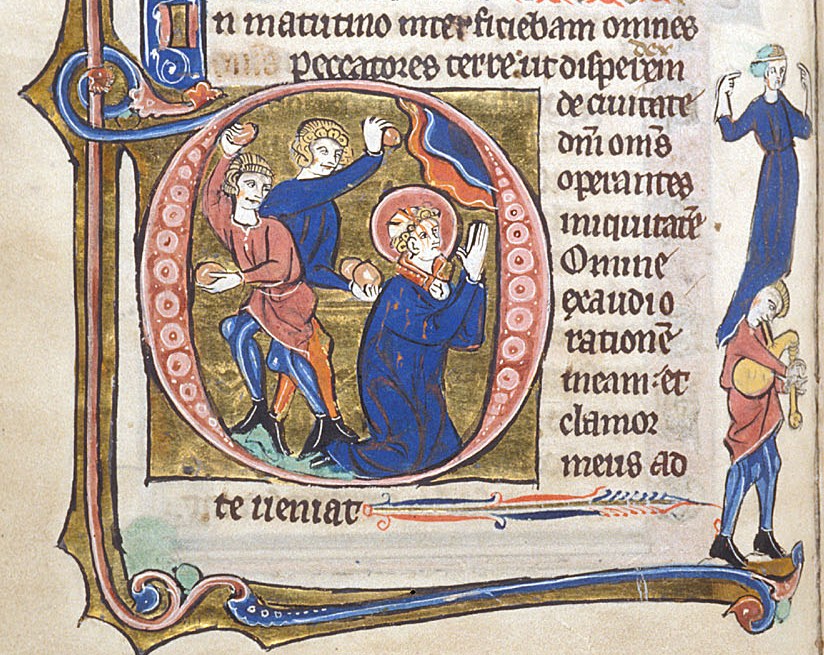 In matutino interficiebam omnes
der
peccatores terre: ut disperem
de ciuitate
dñi om̄s
operantes
iniquitatē
DOmine
exaudi o
rationē
meam: et
clamor
meus ad
te ueniat